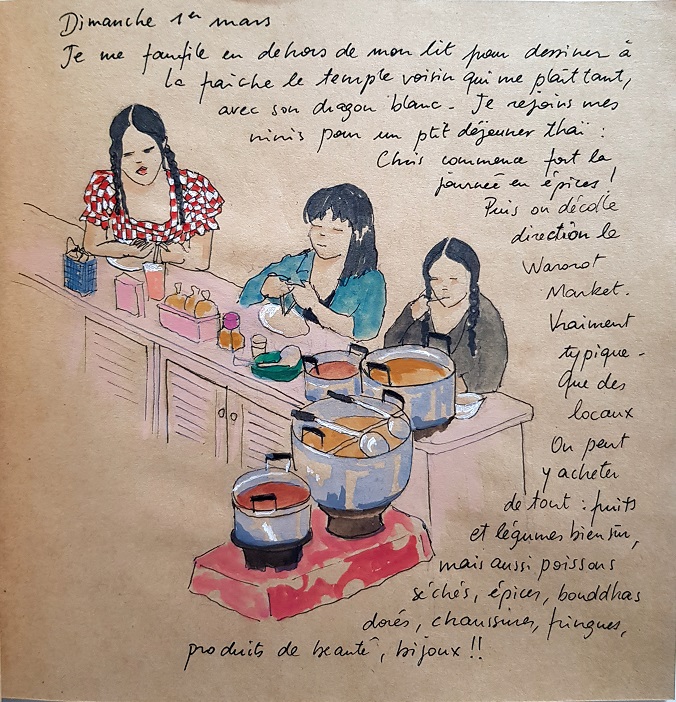 Dimanche 1er mars
Je me faufile en dehors de mon lit pour dessiner à
la fraîche le temple voisin qui me plaît tant,
avec son dragon blanc. Je rejoins mes
minis pour un ptit déjeuner thaï :
Chris commence fort la
journée en épices !
Puis on décolle
direction le
Wararot
Market.
Vraiment
typique -
Que des
locaux
On peut
y acheter
de tout : fruits
et légumes bien sûr,
mais aussi poissons
séchés, épices, bouddhas
dorés, chaussures, fringues,
produits de beauté, bijoux !!